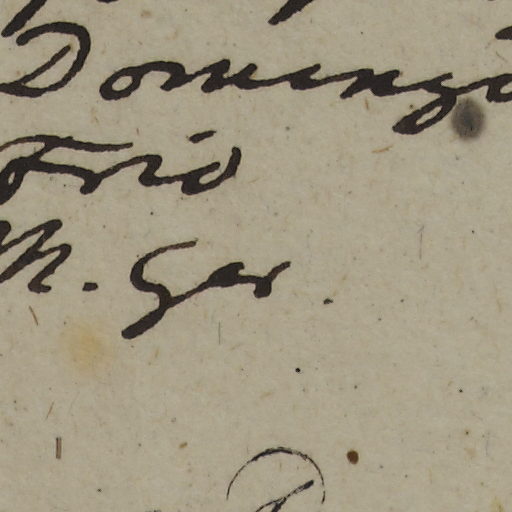 Domingo
Frio
M. Ger.